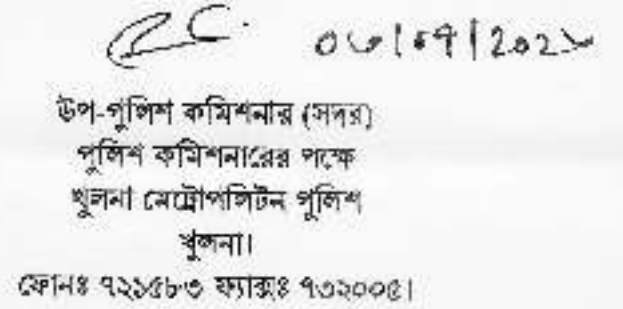 ০৬/০৭/২০২১
উপ-পুলিশ কমিশনার (সদর)
পুলিশ কমিশনারের পক্ষে
খুলনা মেট্রোপলিটন পুলিশ
খুলনা।
ফোনঃ ৭২১৫৮৩ ফ্যাক্সঃ ৭৩২০০৫।